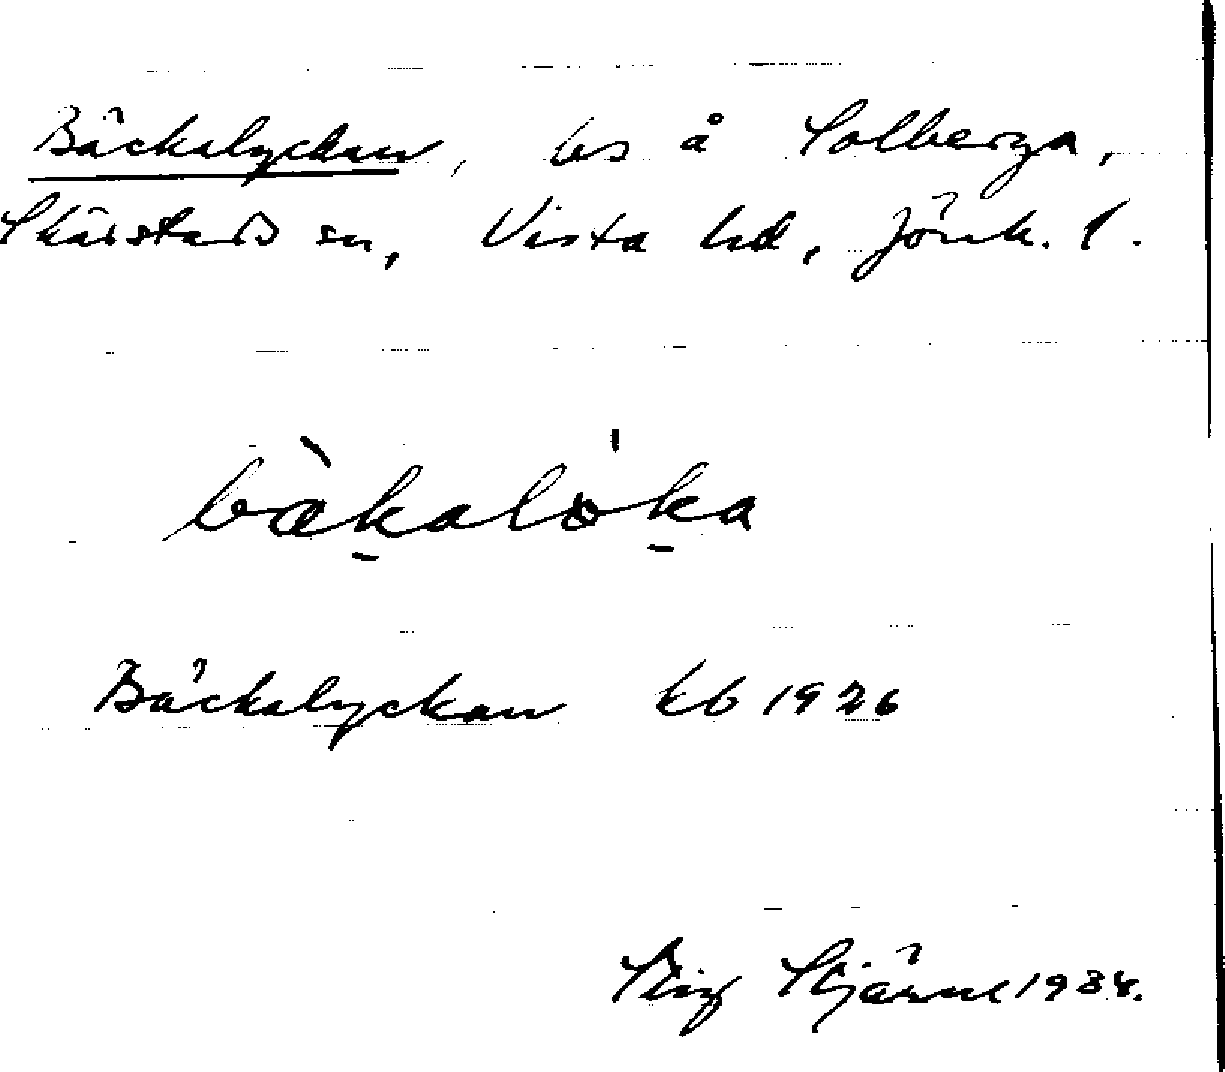 Bäckalyckan, bs å Solberga,
Skärstads sn, Vista hd, Jönk. l.
bækaløka
Bäckalyckan kb 1926
Stig Stjärne 1934.